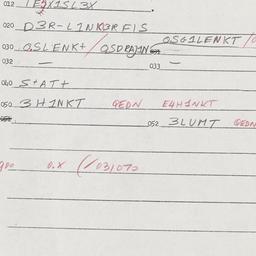 012 1E2X1SL3X
020 D3R-L1NK3RFIS
030 O.SLENK+/QSDRAJMNG O.SG1LENKT/
032 — 033 —
040 S+AT+
050 3H1NKT GEDN E4H1NKT
052 3LUMT GEDN
0.X (/031070